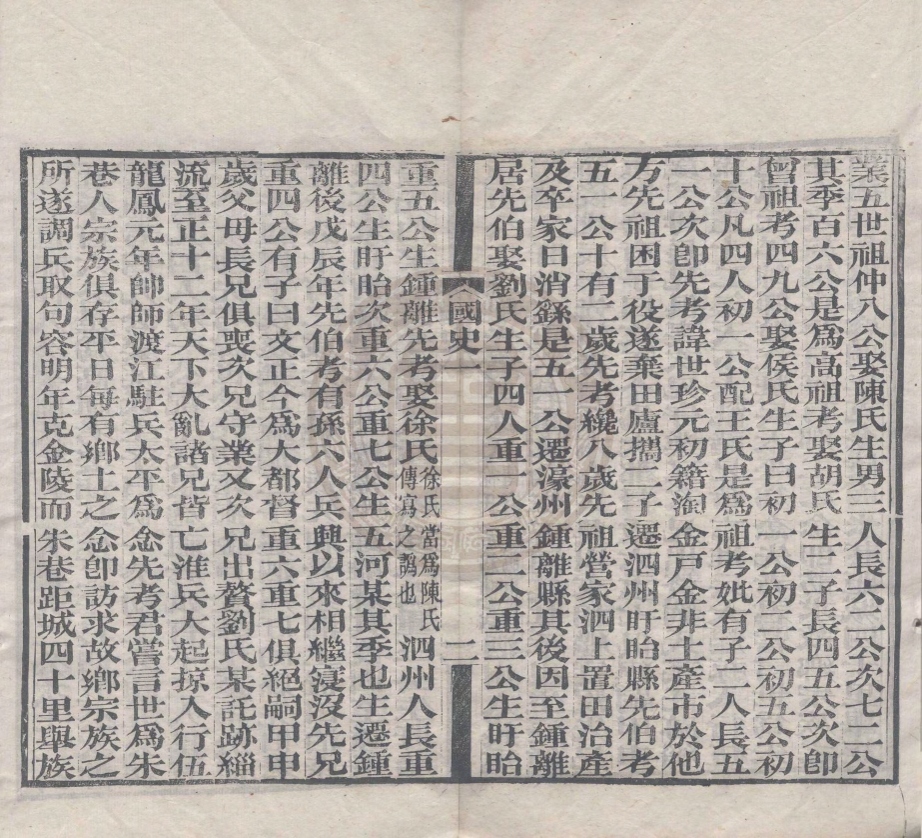 業五世祖仲八公娶陳氏生男三人長六二公次七二公
其季百六公是爲高祖考娶胡氏生二子長四五公次卽
曾祖考四九公娶侯氏生子曰初一公初二公初五公初
十公凡四人初一公配王氏是爲祖考妣有子二人長五
一公次卽先考諱世珍元初籍淘金戶金非土產市於他
方先祖困于役遂棄田廬攜二子遷泗州盱眙縣先伯考
五一公十有二歲先考纔八歲先祖營家泗上置田治產
及卒家日消繇是五一公遷濠州鍾離縣其後因至鍾離
居先伯娶劉氏生子四人重一公重二公重三公生盱眙
國史一
二
重五公生鍾離先考娶徐氏徐氏當爲陳氏傳寫之譌也泗州人長重
四公生盱眙次重六公重七公生五河某其季也生遷鍾
離後戊辰年先伯考有孫六人兵興以來相繼寖沒先兄
重四公有子曰文正今爲大都督重六重七俱絕嗣甲申
歲父母長兄俱喪次兄守業又次兄出贅劉氏某託跡緇
流至正十二年天下大亂諸兄皆亡淮兵大起掠人行伍
龍鳳元年帥師渡江駐兵太平爲念先考君嘗言世爲朱
巷人宗族俱存平日每有鄉土之念卽訪求故鄉宗族之
所遂調兵取句容明年克金陵而朱巷距城四十里舉族